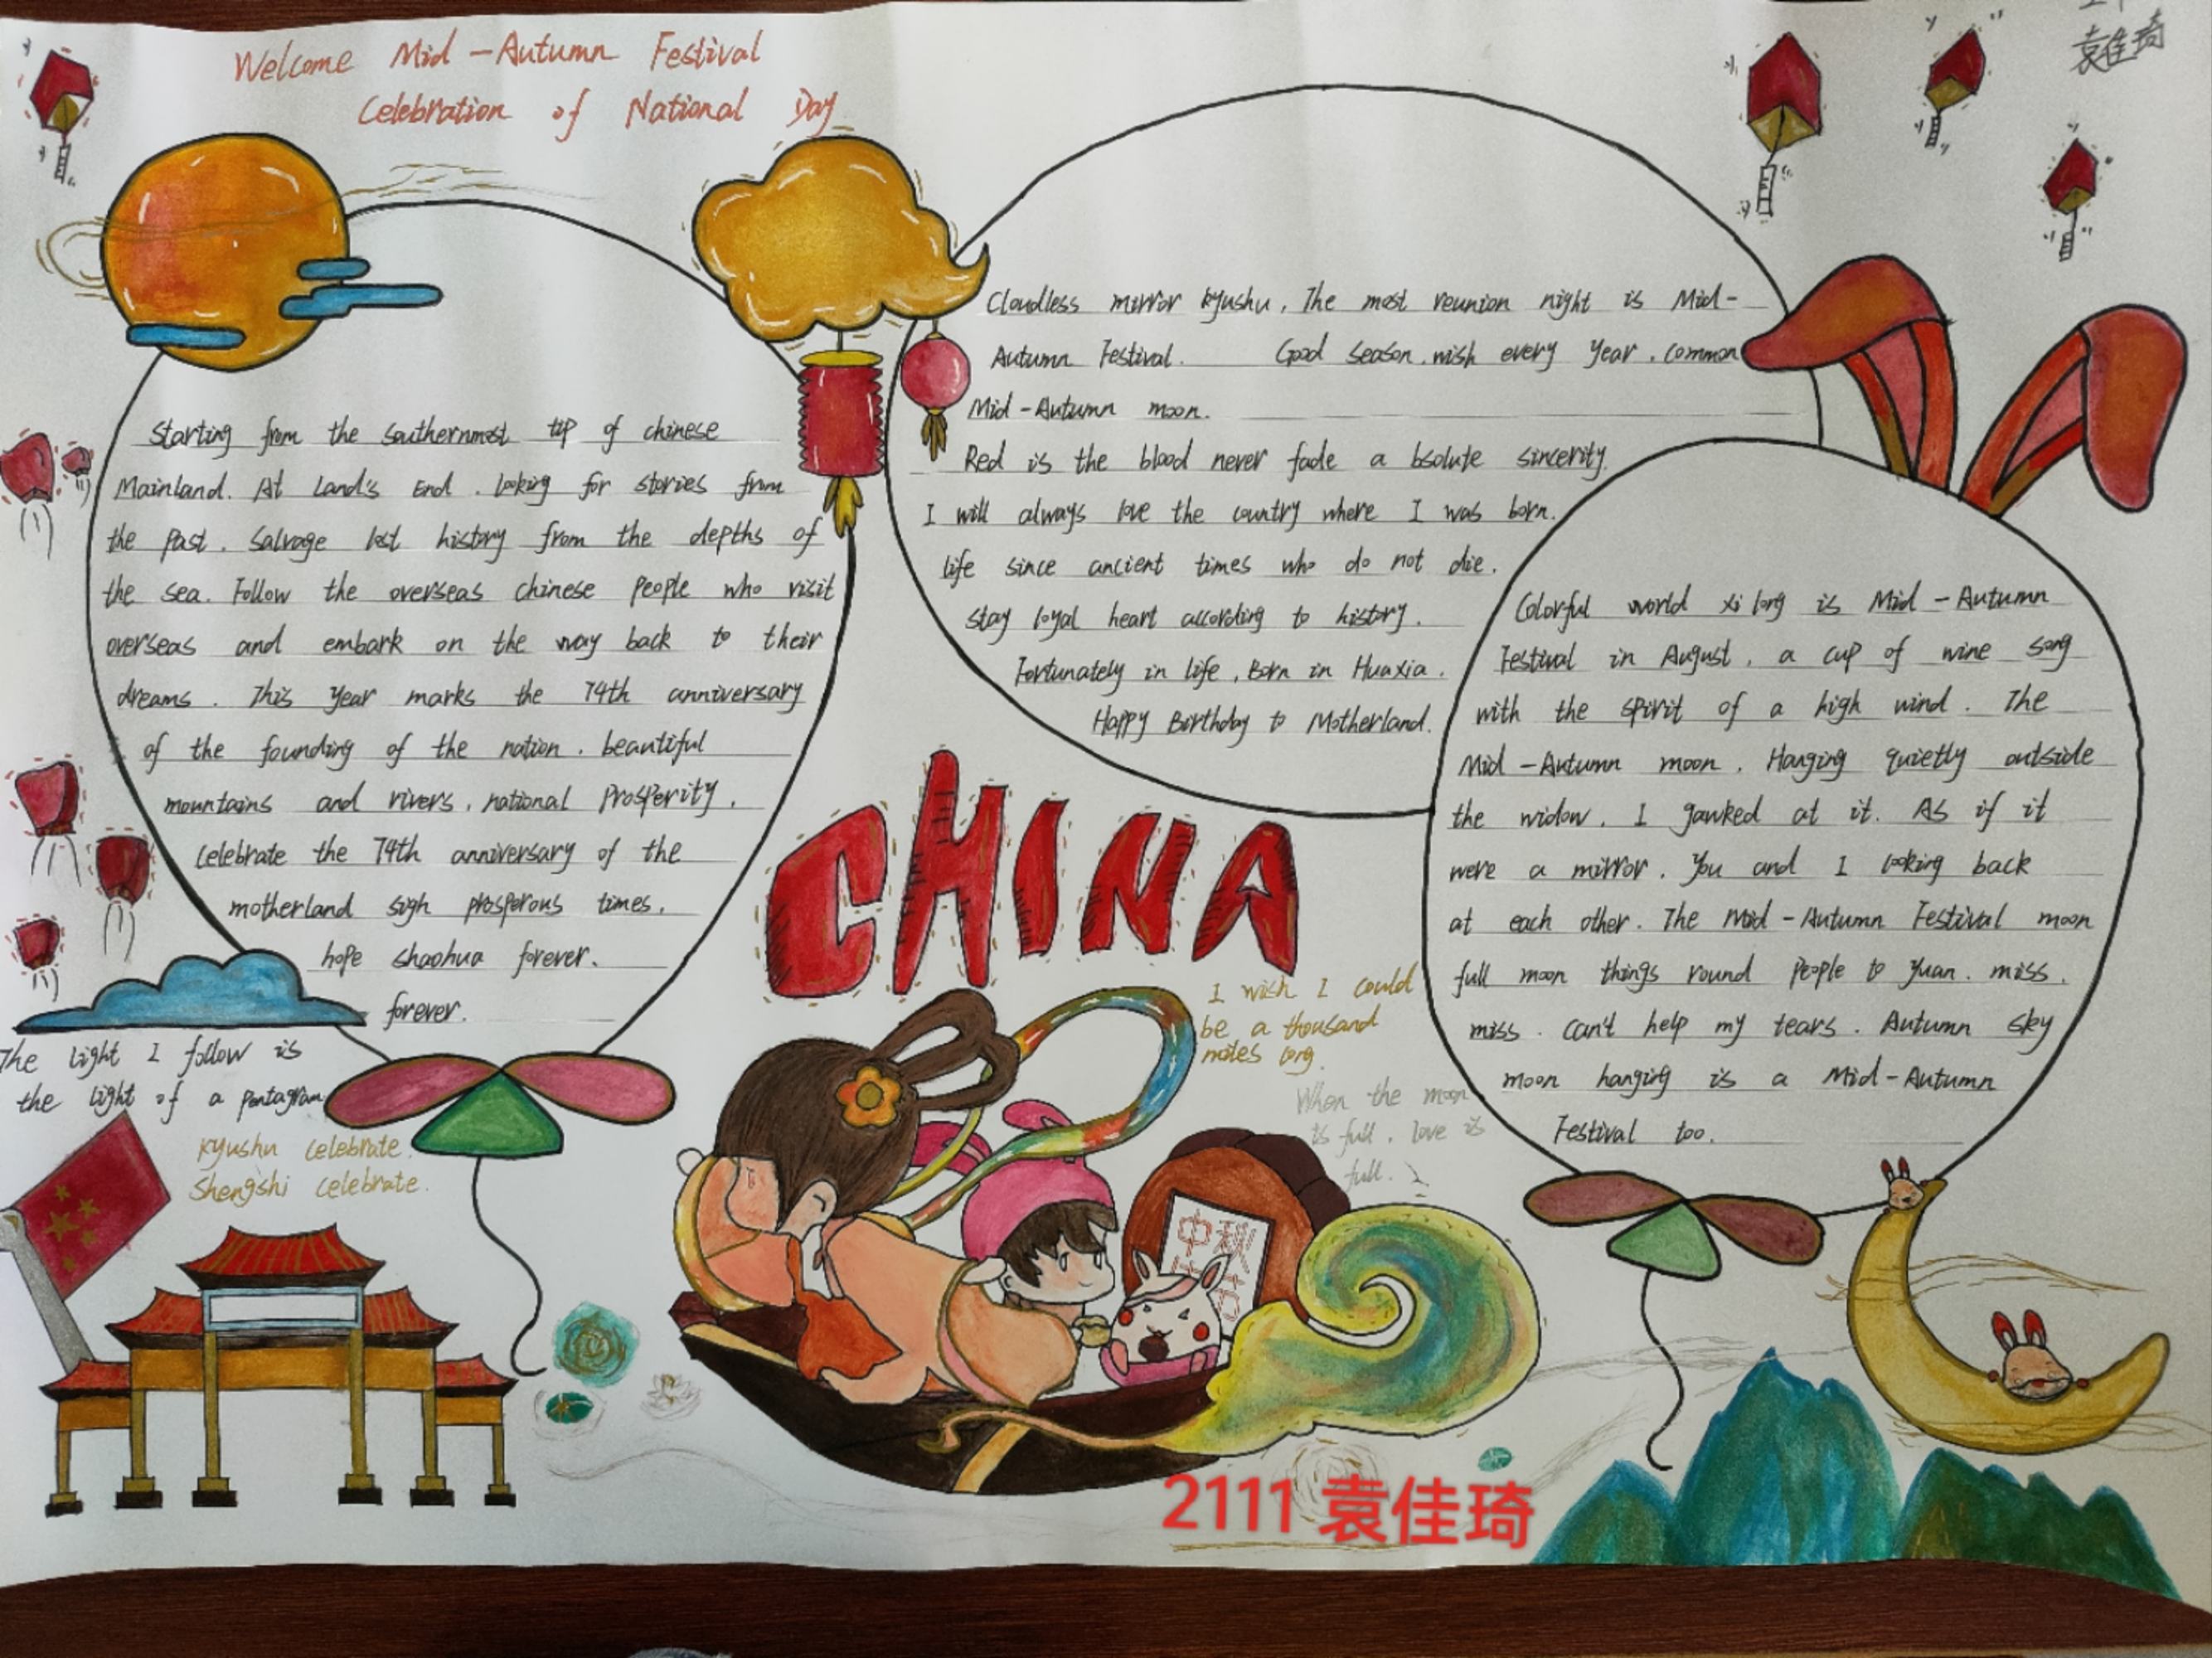 Welcome Mid-Autumn Festival
Celebration of National Day
袁佳琦
Starting from the southernmost tip of chinese
Mainland. At Land's End. looking for stories from
the past. Salvage lost history from the depths of
the sea. Follow the overseas chinese people who visit
overseas and embark on the way back to their
dreams. This year marks the 74th anniversary
of the founding of the nation. beautiful
mountains and rivers, national prosperity.
celebrate the 74th anniversary of the
motherland sigh prosperous times.
hope shaohua forever.
forever.
Cloudless mirror kyushu, The most reunion night is Mid-
Autumn Festival. Good season. wish every year. common
Mid-Autumn moon.
Red is the blood never fade a bsolute sincerity.
I will always love the country where I was born.
life since ancient times who do not die.
stay loyal heart according to history.
Fortunately in life, Born in Huaxia.
Happy Birthday to Motherland.
Colorful world xi long is Mid-Autumn
Festival in August, a cup of wine song
with the spirit of a high wind. The
Mid-Autumn moon. Hanging quietly outside
the widow. I gawked at it. As if it
were a mirror. You and I looking back
at each other. The Mid-Autumn Festival moon
full moon things round people to yuan. miss.
miss. can't help my tears. Autumn sky
moon hanging is a Mid-Autumn
Festival too.
CHINA
I wish I could
be a thousand
miles long.
When the moon
is full, love is
full.
The light I follow is
the light of a pentagram
kyushu celebrate.
Shengshi celebrate.
中秋
2111 袁佳琦